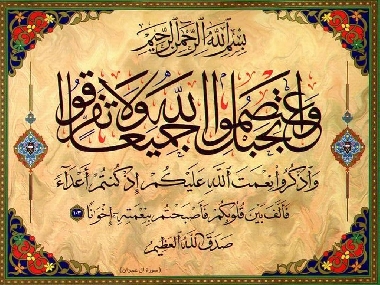 بسم الله الرحمن الرحيم
واعتصموا بحبل الله جميعا ولا تفرقوا
وَاذْكُرُوا نِعْمَتَ اللَّهِ عَلَيْكُمْ إِذْ كُنتُمْ أَعْدَاءً
فَأَلَّفَ بَيْنَ قُلُوبِكُمْ فَأَصْبَحْتُم بِنِعْمَتِهِ إِخْوَانًا ١٠٣
صدق الله العظيم
(سورة آل عمران)